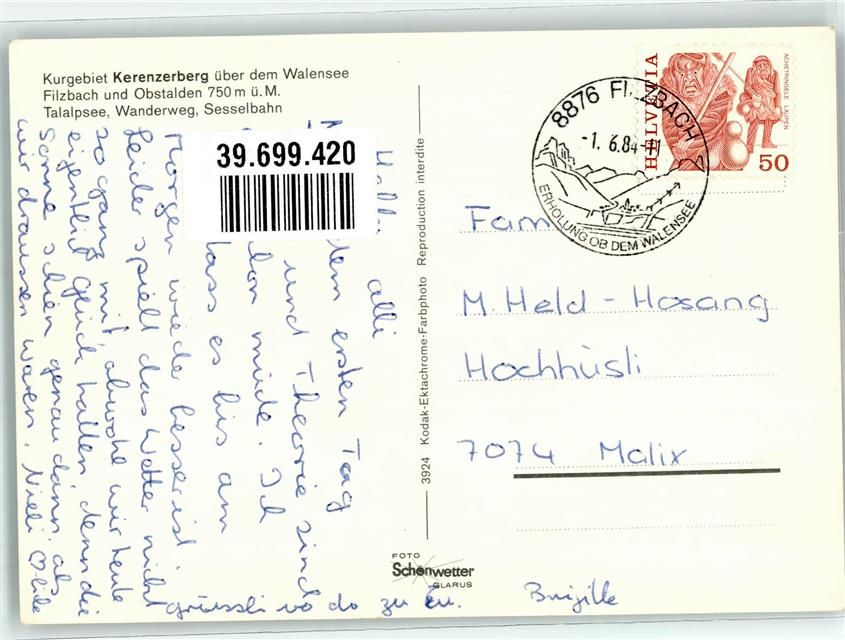 Kurgebiet Kerenzerberg über dem Walensee
Filzbach und Obstalden 750 m ü. M.
Talalpsee, Wanderweg, Sesselbahn
39.699.420
Hallo alli
dem ersten Tag
und Theorie sind
müde. Ich
dass es bis am
Morgen wieder besser ist.
Leider spielt das Wetter nicht
so ganz mit obwohl wir heute
eigentlich Glück hatten denn die
Sonne schien genau dann als
wir draussen waren. Vieli ♡-liche
grüessli vo do zu Eu. Brigitte
3924 Kodak-Ektachrome-Farbphoto Reproduction interdite
FOTO
Schönwetter
GLARUS
8876 FILZBACH
-1. 6.84
ERHOLUNG OB DEM WALENSEE
HELVETIA
ACHETRINGELE LAUPEN
50
Fam
M. Held-Hosang
Hochhüsli
7074 Malix